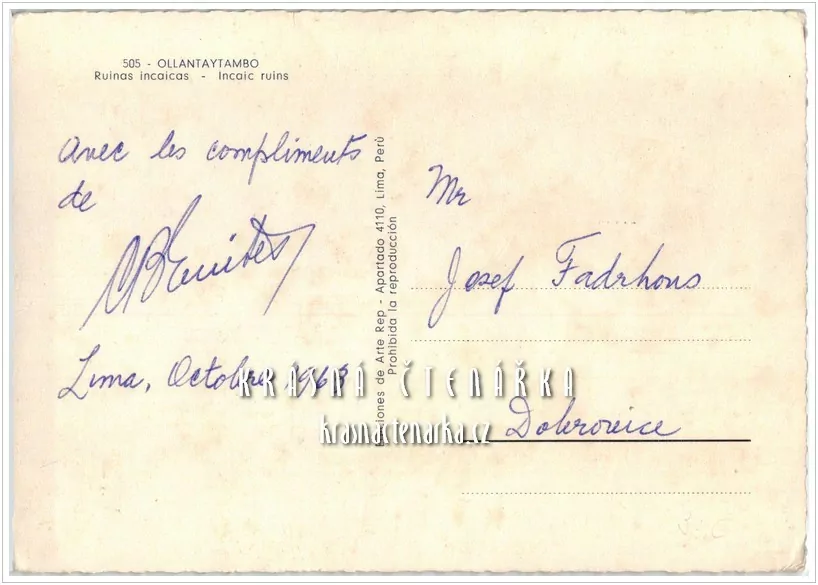 505 - OLLANTAYTAMBO
Ruinas incaicas - Incaic ruins
Avec les compliments
de
Lima, Octobre 1968
Ediciones de Arte Rep - Apartado 4110, Lima, Perú
Prohibida la reproducción
Mr
Josef Fadrhons
Dobrovice
KRÁSNÁ ČTENÁŘKA
krasnactenarka.cz